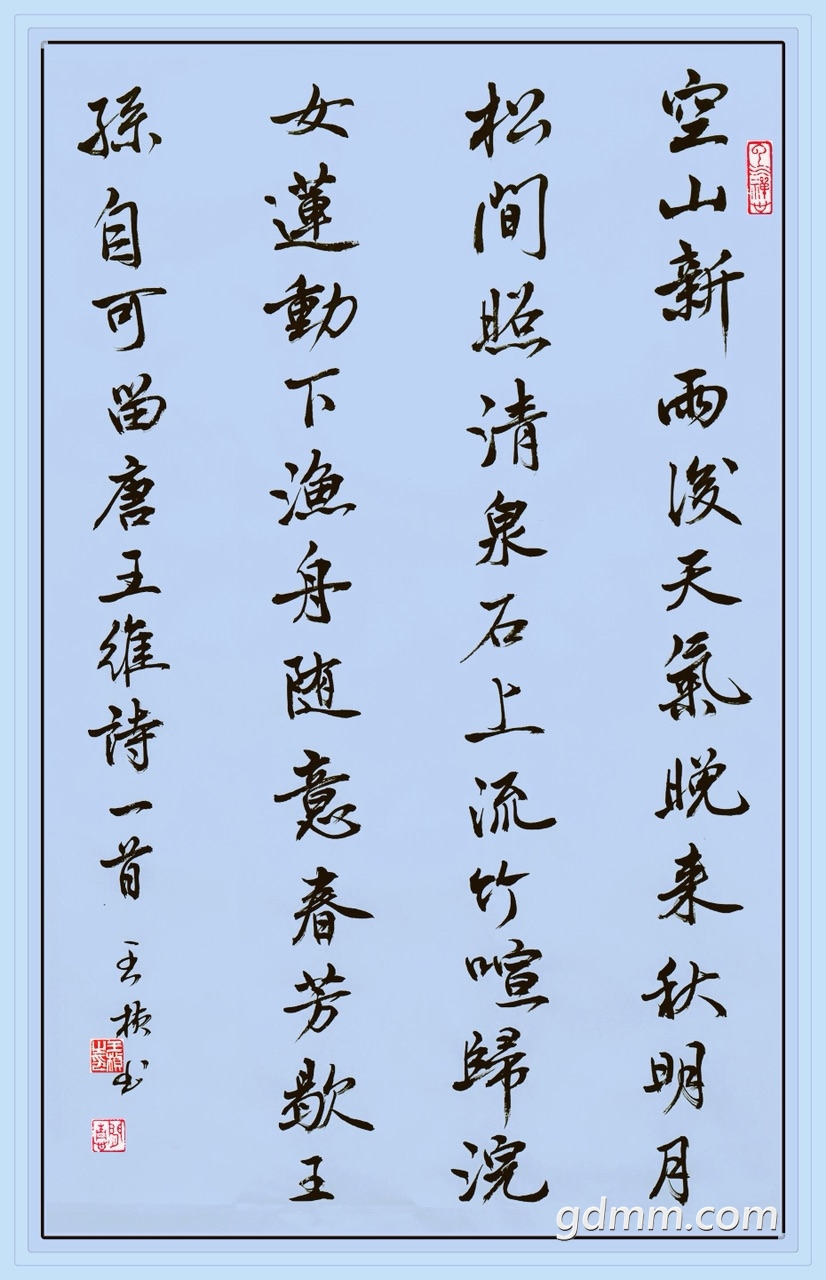 空山新雨後天氣晚来秋明月
松間照清泉石上流竹喧歸浣
女蓮動下漁舟随意春芳歇王
孫自可留唐王維詩一首
王书
gdmm.com